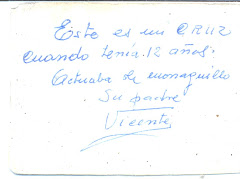 Este es mi CRUZ
cuando tenía 12 años.
Actuaba de monaguillo
Su padre
Vicente